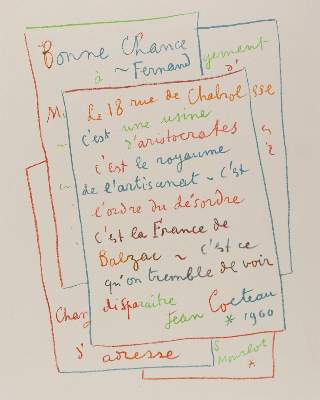 Bonne Chance
à ~ Fernand
gement
d'
Le 18 rue de Chabrol
sse
c'est une usine
d'aristocrates
c'est le royaume
de l'artisanat ~ c'est
l'ordre du désordre
c'est la France de
Balzac ~ c'est ce
qu'on tremble de voir
disparaître
Jean Cocteau
* 1960
Chang
d'adresse
S
Mourlot
*